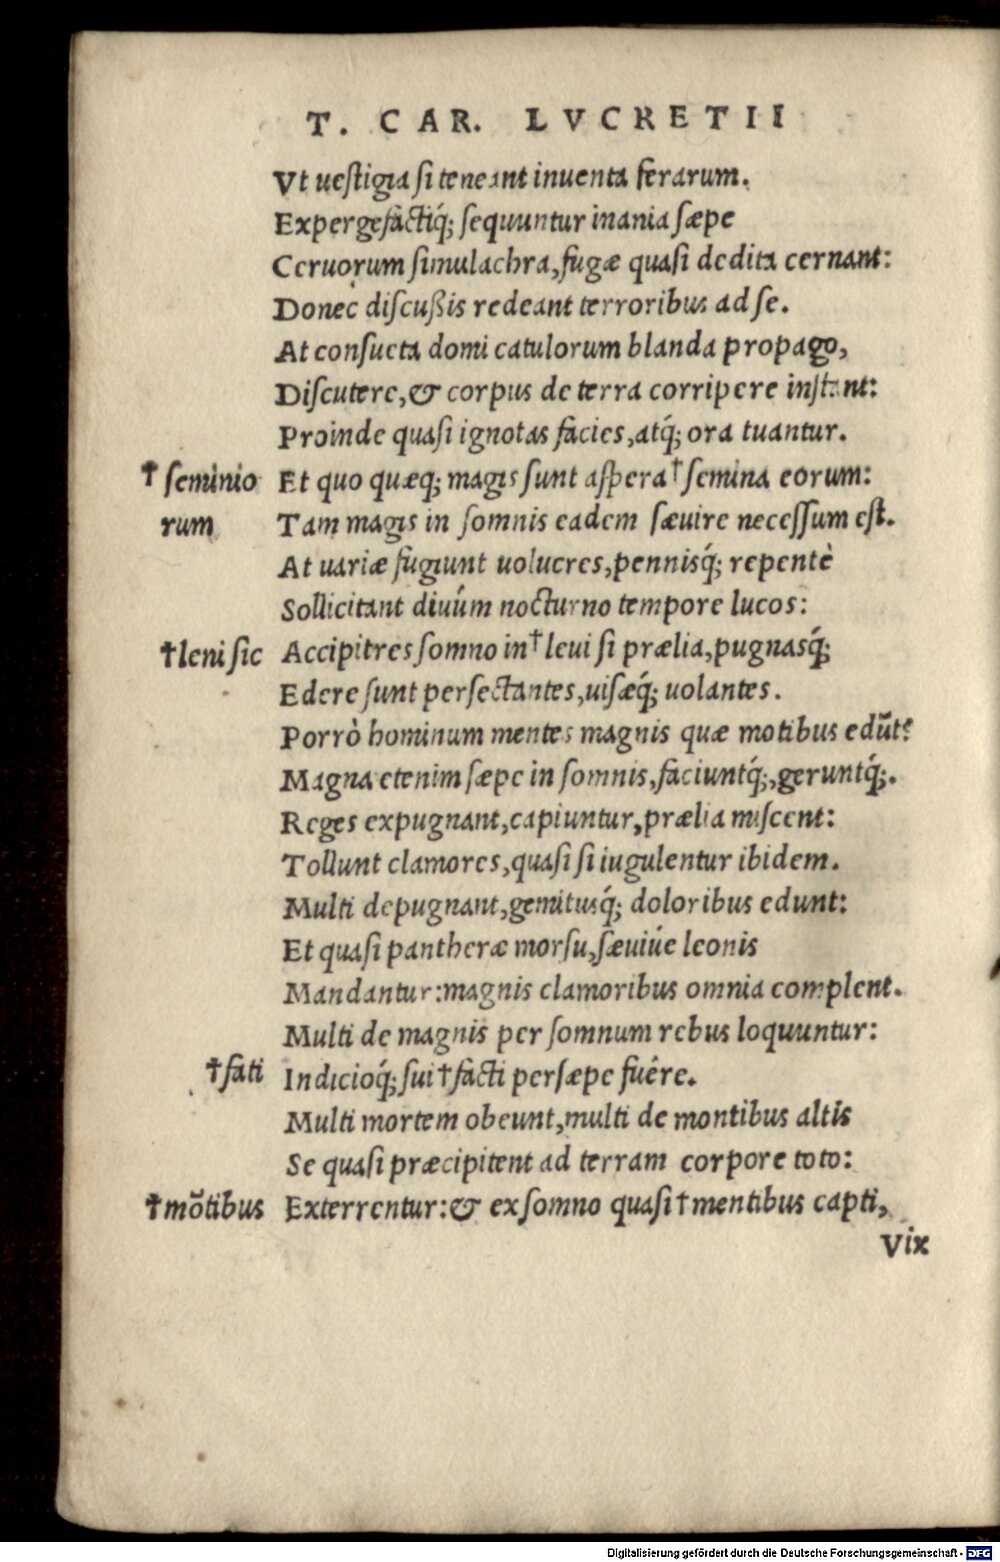 T. CAR. LVCRETII
Vt uestigia si teneant inuenta ferarum.
Expergefactiq́; sequuntur inania sæpe
Ceruorum simulachra, fugæ quasi dedita cernant:
Donec discußis redeant terroribus ad se.
At consueta domi catulorum blanda propago,
Discutere, & corpus de terra corripere instant:
Proinde quasi ignotas facies, atq́; ora tuantur.
† seminio Et quo quæq; magis sunt aspera † semina eorum:
rum Tam magis in somnis eadem sæuire necessum est.
At uariæ fugiunt uolucres, pennisq́; repentè
Sollicitant diuûm nocturno tempore lucos:
† leni sic Accipitres somno in † leui si prælia, pugnasq́;
Edere sunt persectantes, uisæq́; uolantes.
Porrò hominum mentes magnis quæ motibus edũt?
Magna etenim sæpe in somnis, faciuntq́;, geruntq́;.
Reges expugnant, capiuntur, prælia miscent:
Tollunt clamores, quasi si iugulentur ibidem.
Multi depugnant, gemitusq́; doloribus edunt:
Et quasi pantheræ morsu, sæuiúe leonis
Mandantur: magnis clamoribus omnia complent.
Multi de magnis per somnum rebus loquuntur:
† fati Indicioq́; sui † facti persæpe fuêre.
Multi mortem obeunt, multi de montibus altis
Se quasi præcipitent ad terram corpore toto:
† mõtibus Exterrentur: & ex somno quasi † mentibus capti,
Vix
Digitalisierung gefördert durch die Deutsche Forschungsgemeinschaft - DFG